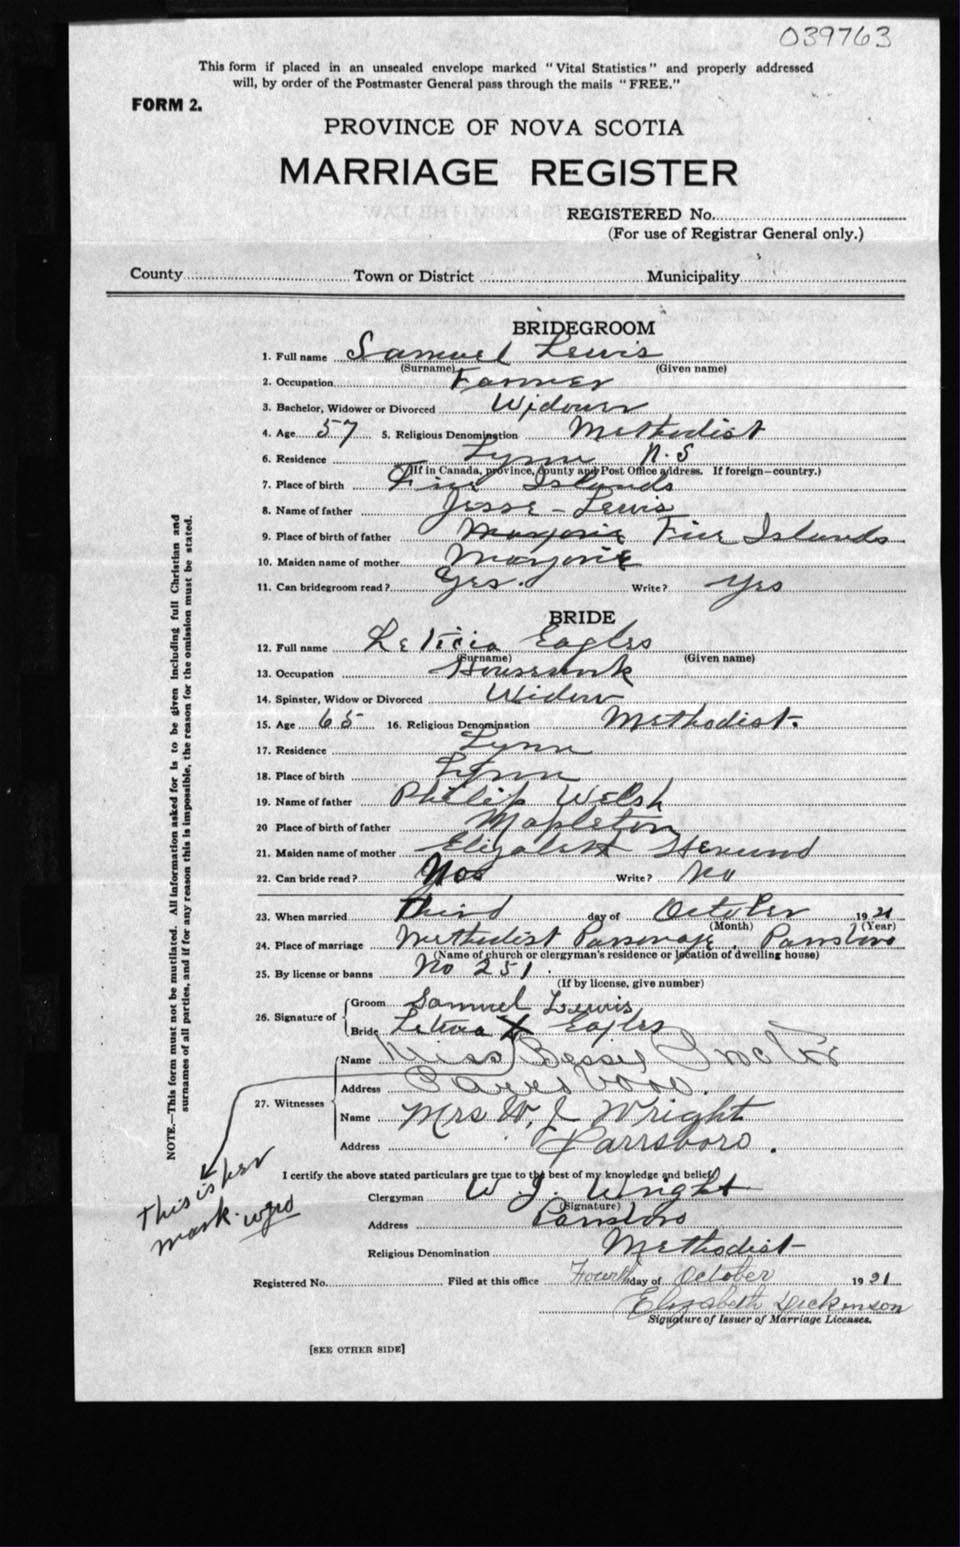 039763
This form if placed in an unsealed envelope marked "Vital Statistics" and properly addressed
will, by order of the Postmaster General pass through the mails "FREE."
FORM 2.
PROVINCE OF NOVA SCOTIA
MARRIAGE REGISTER
REGISTERED No.
(For use of Registrar General only.)
County Town or District Municipality
BRIDEGROOM
1. Full name Samuel Lewis
(Surname) (Given name)
2. Occupation Farmer
3. Bachelor, Widower or Divorced Widower
4. Age 57 5. Religious Denomination Methodist
6. Residence Lynn N.S
(If in Canada, province, county and Post Office address. If foreign—country.)
7. Place of birth Five Islands
8. Name of father Jesse - Lewis
9. Place of birth of father Marjorie Five Islands
10. Maiden name of mother Marjorie
11. Can bridegroom read? Yes. Write? Yes
BRIDE
12. Full name Leticia Eagles
(Surname) (Given name)
13. Occupation Housework
14. Spinster, Widow or Divorced Widow
15. Age 65 16. Religious Denomination Methodist.
17. Residence Lynn
18. Place of birth Lynn
19. Name of father Phillip Welsh
20 Place of birth of father Mapleton
21. Maiden name of mother Elizabeth
22. Can bride read? Write? No
23. When married Third day of October 1921
(Month) (Year)
24. Place of marriage Methodist Parsonage, Parrsboro
(Name of church or clergyman's residence or location of dwelling house)
25. By license or banns No 251.
(If by license, give number)
26. Signature of Groom Samuel Lewis
Bride Leticia X Eagles
27. Witnesses Name Miss Bessy
Address Parrsboro.
Name Mrs W. J. Wright
Address Parrsboro.
I certify the above stated particulars are true to the best of my knowledge and belief.
Clergyman W. J. Wright
(Signature)
Address Parrsboro
Religious Denomination Methodist
Registered No. Filed at this office Fourth day of October 1921
Elizabeth Dickinson
Signature of Issuer of Marriage Licenses.
[SEE OTHER SIDE]
NOTE.—This form must not be mutilated. All information asked for is to be given including full Christian and
surnames of all parties, and if for any reason this is impossible, the reason for the omission must be stated.
This is her
mark.